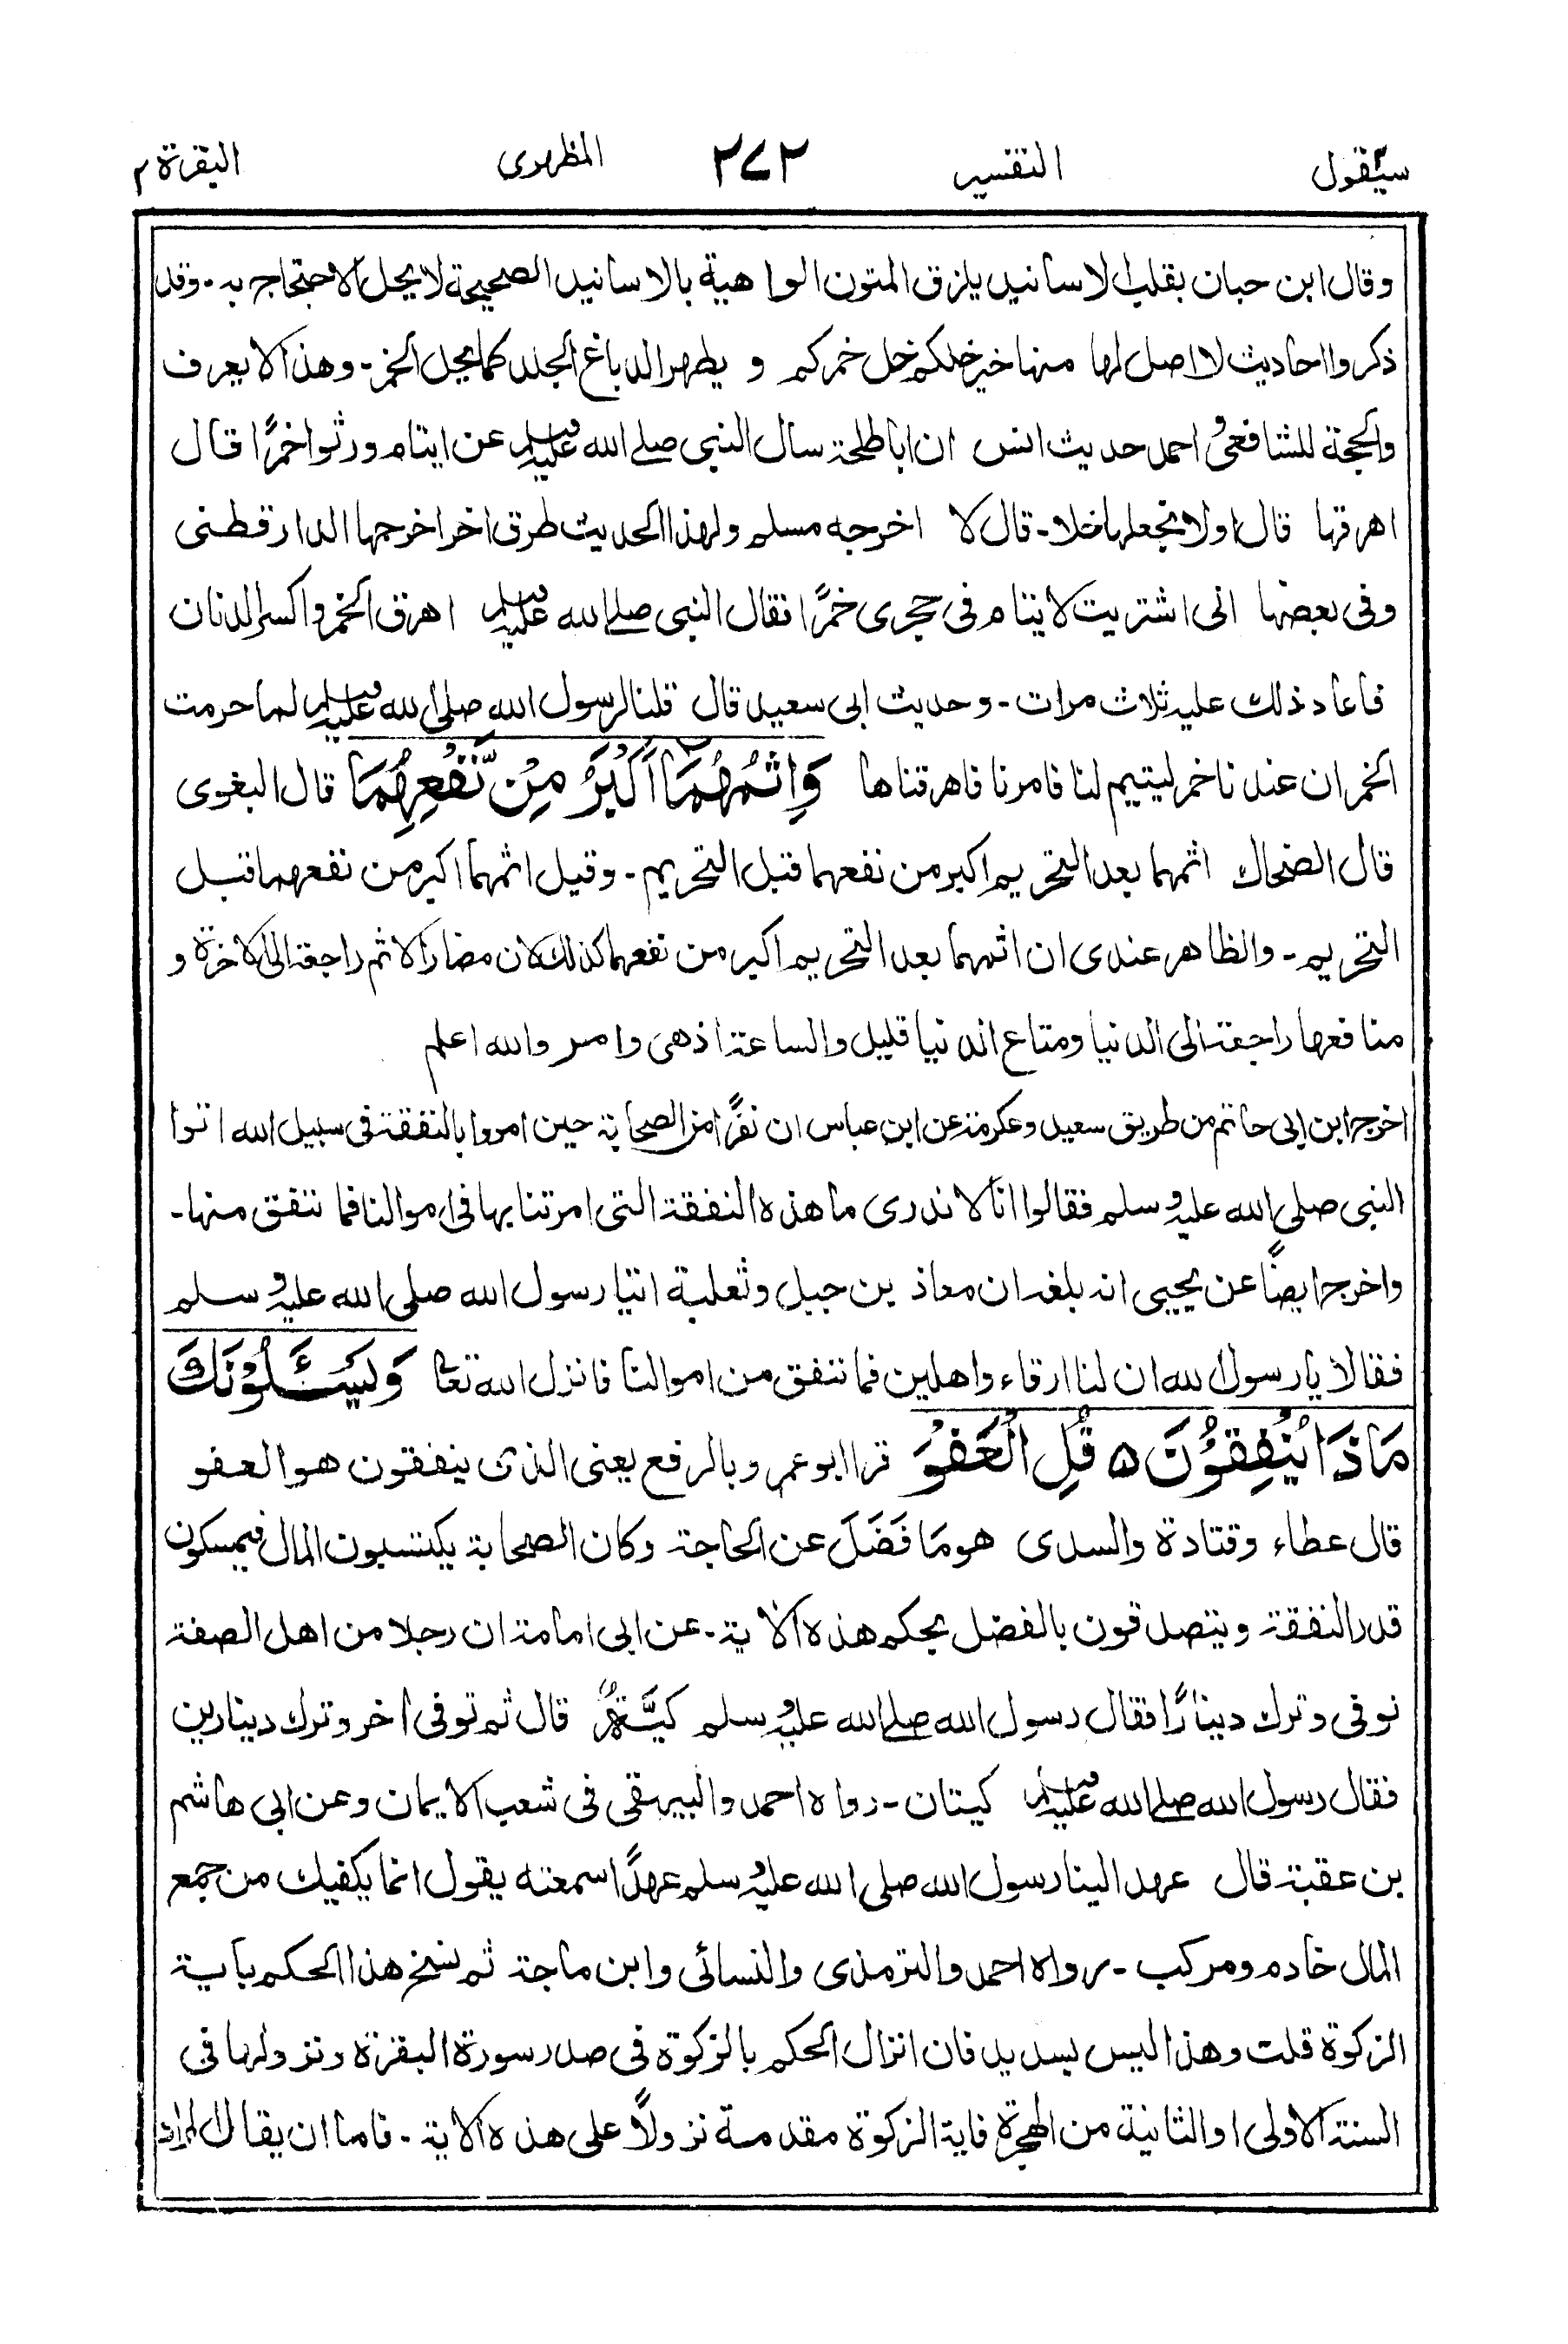 سيقول ٢ التفسير ٢٧٢ المظهرى البقرة ٢
وقال ابن حبان بقلب الاسانيد يلزق المتون الواهية بالاسانيد الصحيحة لا يحل الاحتجاج به ـ وقد
ذكروا احاديث لا اصل لها منها خير خلكم خل خمركم و يطهر الدباغ الجلد كما يحل الخمر ـ وهذا لا يعرف
والحجة للشافعى واحمد حديث انس ان ابا طلحة سال النبى صلے الله عليه وسلم عن ايتام ورثوا خمرًا قال
اهرقها قال اولا نجعلها خلا ـ قال لا اخرجه مسلم ولهذا الحديث طرق اخر اخرجها الدارقطنى
وفى بعضها انى اشتريت لايتام فى حجرى خمرًا فقال النبى صلے الله عليه وسلم اهرق الخمر واكسر الدنان
فاعاد ذلك عليه ثلاث مرات ـ وحديث ابى سعيد قال قلنا لرسول الله صلى الله عليه وسلم لما حرمت
الخمر ان عندنا خمر ليتيم لنا فامرنا فاهرقناها وَاِثْمُهُمَا اَكْبَرُ مِنْ نَّفْعِهِمَا قال البغوى
قال الضحاك اثمهما بعد التحريم اكبر من نفعهما قبل التحريم ـ وقيل اثمهما اكبر من نفعهما قبل
التحريم ـ والظاهر عندى ان اثمهما بعد التحريم اكبر من نفعهما كذلك لان مضار الاثم راجعة الى الاخرة و
منافعها راجعة الى الدنيا ومتاع الدنيا قليل والساعة اذهى وامر والله اعلم
اخرج ابن ابى حاتم من طريق سعيد وعكرمة عن ابن عباس ان نفرًا من الصحابة حين امروا بالنفقة فى سبيل الله اتوا
النبى صلى الله عليه وسلم فقالوا انا لا ندرى ما هذه النفقة التى امرتنا بها فى اموالنا فما ننفق منها ـ
واخرج ايضًا عن يحيى انه بلغه ان معاذ بن جبل وثعلبة اتيا رسول الله صلى الله عليه وسلم
فقالا يا رسول الله ان لنا ارقاء واهلين فما ننفق من اموالنا فانزل الله تعالى وَيَسْـَٔلُوْنَكَ
مَاذَا يُنْفِقُوْنَ ۵ قُلِ الْعَفْوَ قرا ابو عمرو بالرفع يعنى الذى ينفقون هو العفو
قال عطاء وقتادة والسدى هو مَا فَضَلَ عن الحاجة وكان الصحابة يكتسبون المال فيمسكون
قدر النفقة ويتصدقون بالفضل بحكم هذه الاية ـ عن ابى امامة ان رجلا من اهل الصفة
توفى وترك دينارًا فقال رسول الله صلے الله عليه وسلم كَيَّةٌ قال ثم توفى اخر وترك دينارين
فقال رسول الله صلے الله عليه وسلم كيتان ـ رواه احمد والبيهقى فى شعب الايمان وعن ابى هاشم
بن عقبة قال عهد الينا رسول الله صلى الله عليه وسلم عهدًا سمعته يقول انما يكفيك من جمع
المال خادم ومركب ـ رواه احمد والترمذى والنسائى وابن ماجة ثم نسخ هذا الحكم بآية
الزكوة قلت وهذا ليس بسديد فان انزال الحكم بالزكوة فى صدر سورة البقرة ونزولها فى
السنة الاولى او الثانية من الهجرة فاية الزكوة مقدمة نزولًا على هذه الاية ـ فاما ان يقال المراد